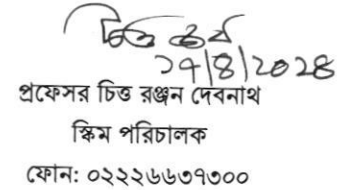 ১৭/৪/২০২৪
প্রফেসর চিত্ত রঞ্জন দেবনাথ
স্কিম পরিচালক
ফোন: ০২২২৬৬৩৭৩০০